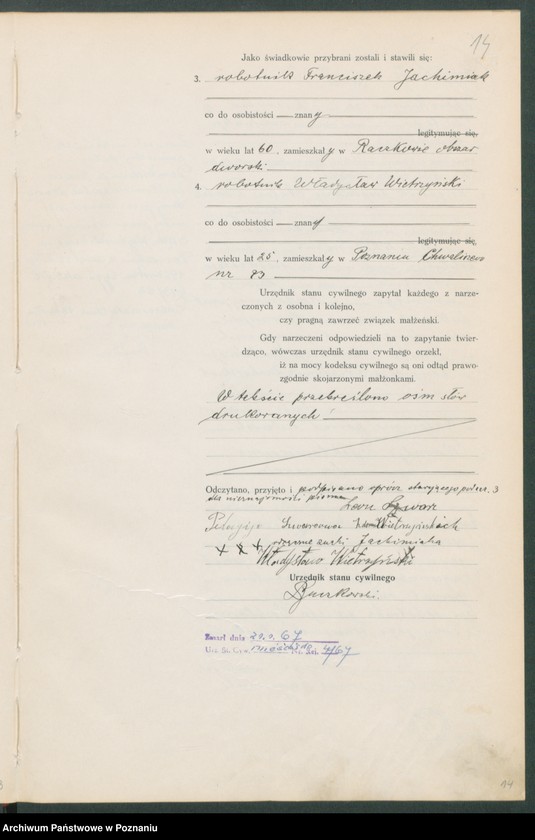 14
Jako świadkowie przybrani zostali i stawili się:
3. robotnik Franciszek Jachimiak
co do osobistości — znany
legitymując się,
w wieku lat 60, zamieszkały w Raczkowie obszar
dworski
4. robotnik Władysław Wietrzyński
co do osobistości — znany
legitymując się,
w wieku lat 25, zamieszkały w Poznaniu
nr 23
Urzędnik stanu cywilnego zapytał każdego z narze-
czonych z osobna i kolejno,
czy pragną zawrzeć związek małżeński.
Gdy narzeczeni odpowiedzieli na to zapytanie twier-
dząco, wówczas urzędnik stanu cywilnego orzekł,
iż na mocy kodeksu cywilnego są oni odtąd prawo-
zgodnie skojarzonymi małżonkami.
W tekście przekreślono ośm słów
drukowanych!
Odczytano, przyjęto i podpisano oprócz 3
dla nieznajomości pisma
Leon Szwarc
Pelagja Szwarcowa
+ + + Jachimiaka
Władysław Wietrzyński
Urzędnik stanu cywilnego
Zmarł dnia 67
14
Archiwum Państwowe w Poznaniu